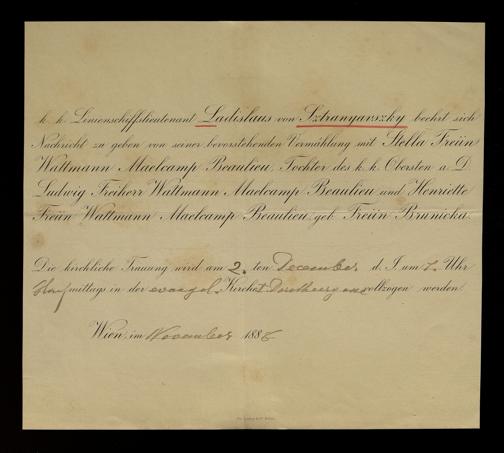 k. k. Linienschiffslieutenant Ladislaus von Sztranyavszky beehrt sich
Nachricht zu geben von seiner bevorstehenden Vermählung mit Stella Freiin
Wattmann Maelcamp Beaulieu, Tochter des k. k. Obersten a. D.
Ludwig Freiherr Wattmann Maelcamp Beaulieu und Henriette
Freiin Wattmann Maelcamp Beaulieu, geb. Freiin Brunicka.
Die kirchliche Trauung wird am 2. ten December d. J. um Uhr
mittags in der evangel. Kirche vollzogen werden.
Wien, im November 1886